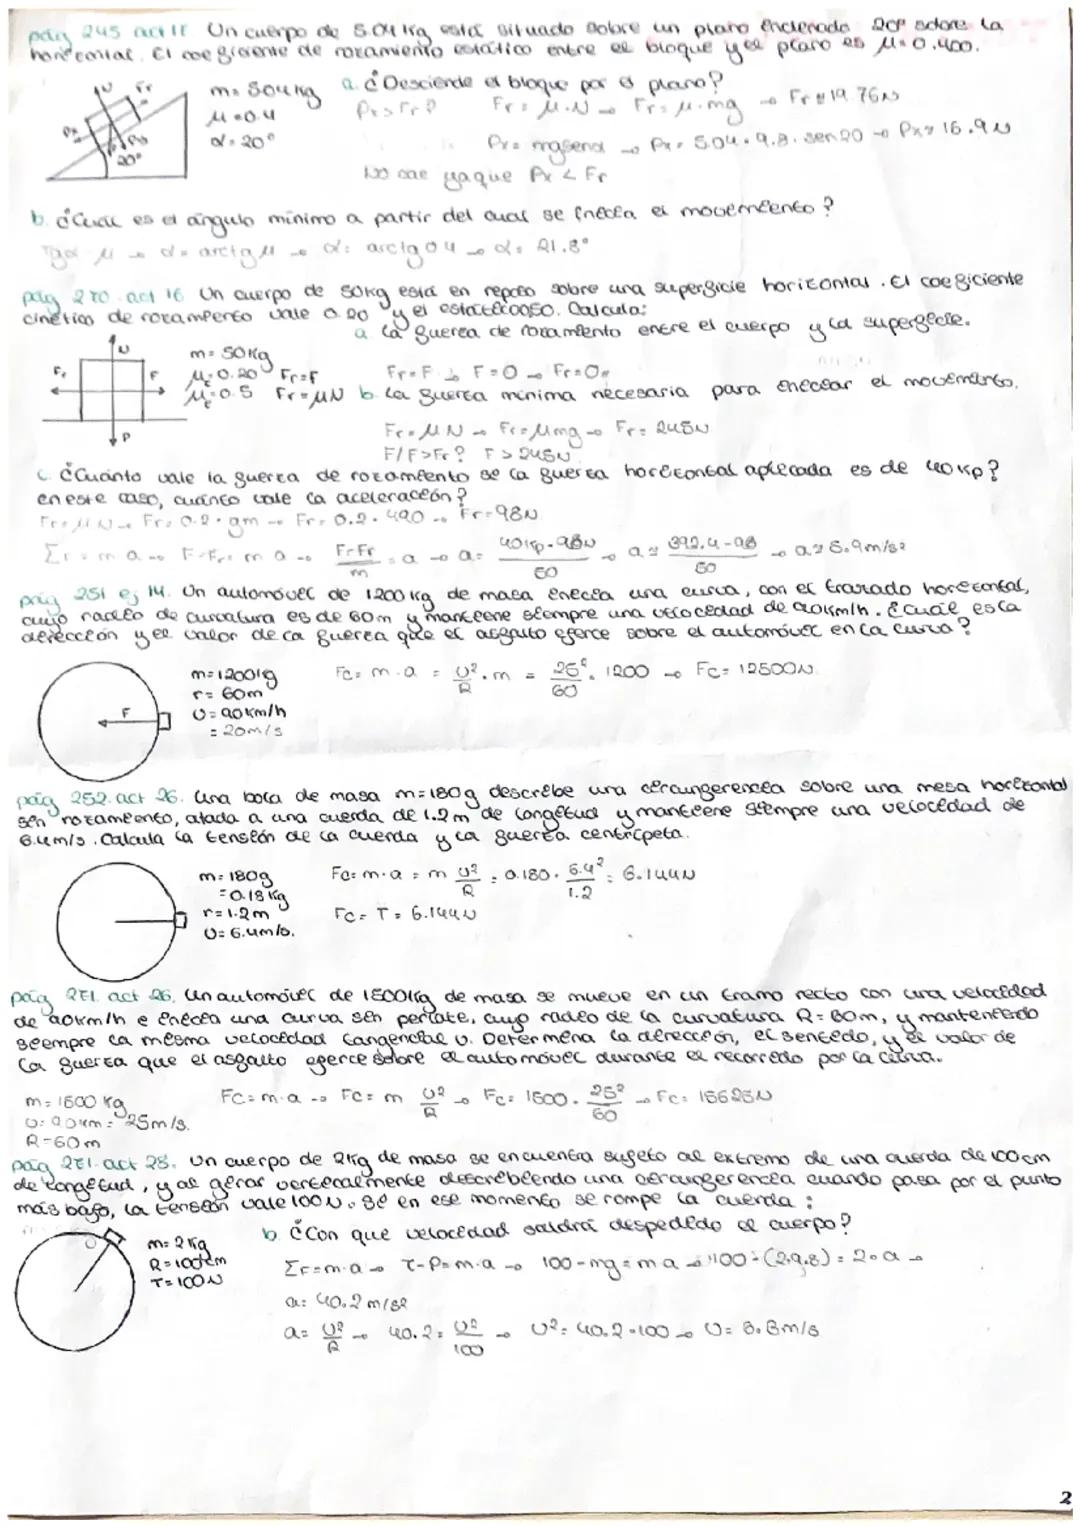 pág 245 act 15 Un cuerpo de 5.04 kg está situado sobre un plano inclinado 20º sobre la
horizontal. El coeficiente de rozamiento estático entre el bloque y el plano es μ=0.400.
a. ¿Desciende el bloque por el plano?
m= 504kg
μ=0.4
α=20º
Px>Fr?
Fr=μ·N → Fr=μ·mg → Fr≅19.76N
Px= mgsenα → Px= 5.04·9.8·sen20 → Px≅16.9N
No cae ya que Px < Fr
N
Fr
Px
Py
20º
b. ¿Cuál es el ángulo mínimo a partir del cual se inicia el movimiento?
Tgα=μ → α=arctgμ → α= arctg04 → α= 21.8º
pág 270 act 16 Un cuerpo de 50kg está en reposo sobre una superficie horizontal. El coeficiente
cinético de rozamiento vale 0.20 y el estático 0.50. Calcula:
a la fuerza de rozamiento entre el cuerpo y la superficie.
N
Fr
F
P
m= 50kg
μc=0.20
μe=0.5
Fr=F
Fr=μN
Fr=F → F=0 → Fr=0
b. la fuerza mínima necesaria para iniciar el movimiento.
Fr=μN → Fr=μmg → Fr= 245N
F/F>Fr? F>245N
c. ¿Cuánto vale la fuerza de rozamiento si la fuerza horizontal aplicada es de 40kp?
en este caso, cuánto vale la aceleración?
Fr=μN → Fr= 0.2·gm → Fr= 0.2·490 → Fr=98N
ΣF=m·a → F-Fr=m·a → F-Fr/m = a → a= 40kp-98N/50 → a≅ 392.4-98/50 → a≅5.9m/s²
pág 251 ej 14. Un automóvil de 1200kg de masa inicia una curva, con el trazado horizontal,
cuyo radio de curvatura es de 60m y mantiene siempre una velocidad de 90km/h. ¿Cuál es la
dirección y el valor de la fuerza que el asfalto ejerce sobre el automóvil en la curva?
F
m=1200kg
r= 60m
v=90km/h
= 20m/s
Fc= m·a = v²/R·m = 25²/60·1200 → Fc= 12500N
pág 252. act 26. Una bola de masa m=180g describe una circunferencia sobre una mesa horizontal
sin rozamiento, atada a una cuerda de 1.2m de longitud y mantiene siempre una velocidad de
6.4m/s. Calcula la tensión de la cuerda y la fuerza centrípeta.
m= 180g
=0.18kg
r=1.2m
v=6.4m/s.
Fc= m·a = m v²/R = 0.180· 6.4²/1.2 = 6.144N
Fc= T= 6.144N
pág 271. act 26. Un automóvil de 1500kg de masa se mueve en un tramo recto con una velocidad
de 90km/h e inicia una curva sin peralte, cuyo radio de la curvatura R=60m, y manteniendo
siempre la misma velocidad tangencial v. Determina la dirección, el sentido, y el valor de
la fuerza que el asfalto ejerce sobre el automóvil durante el recorrido por la curva.
m= 1500 kg
v=90km= 25m/s.
R=60m
Fc=m·a → Fc= m v²/R → Fc= 1500· 25²/60 → Fc= 15625N
pág 271. act 28. Un cuerpo de 2kg de masa se encuentra sujeto al extremo de una cuerda de 100cm
de longitud, y al girar verticalmente describiendo una circunferencia cuando pasa por el punto
más bajo, la tensión vale 100N. Si en ese momento se rompe la cuerda:
m= 2kg
R=100cm
T=100N
b. ¿Con que velocidad saldrá despedido el cuerpo?
ΣF=m·a → T-P=m·a → 100-mg=ma → 100-(2·9.8)=2·a →
a= 40.2m/s²
a= v²/R → 40.2= v²/100 → v²=40.2·100 → v= 6.3m/s
2